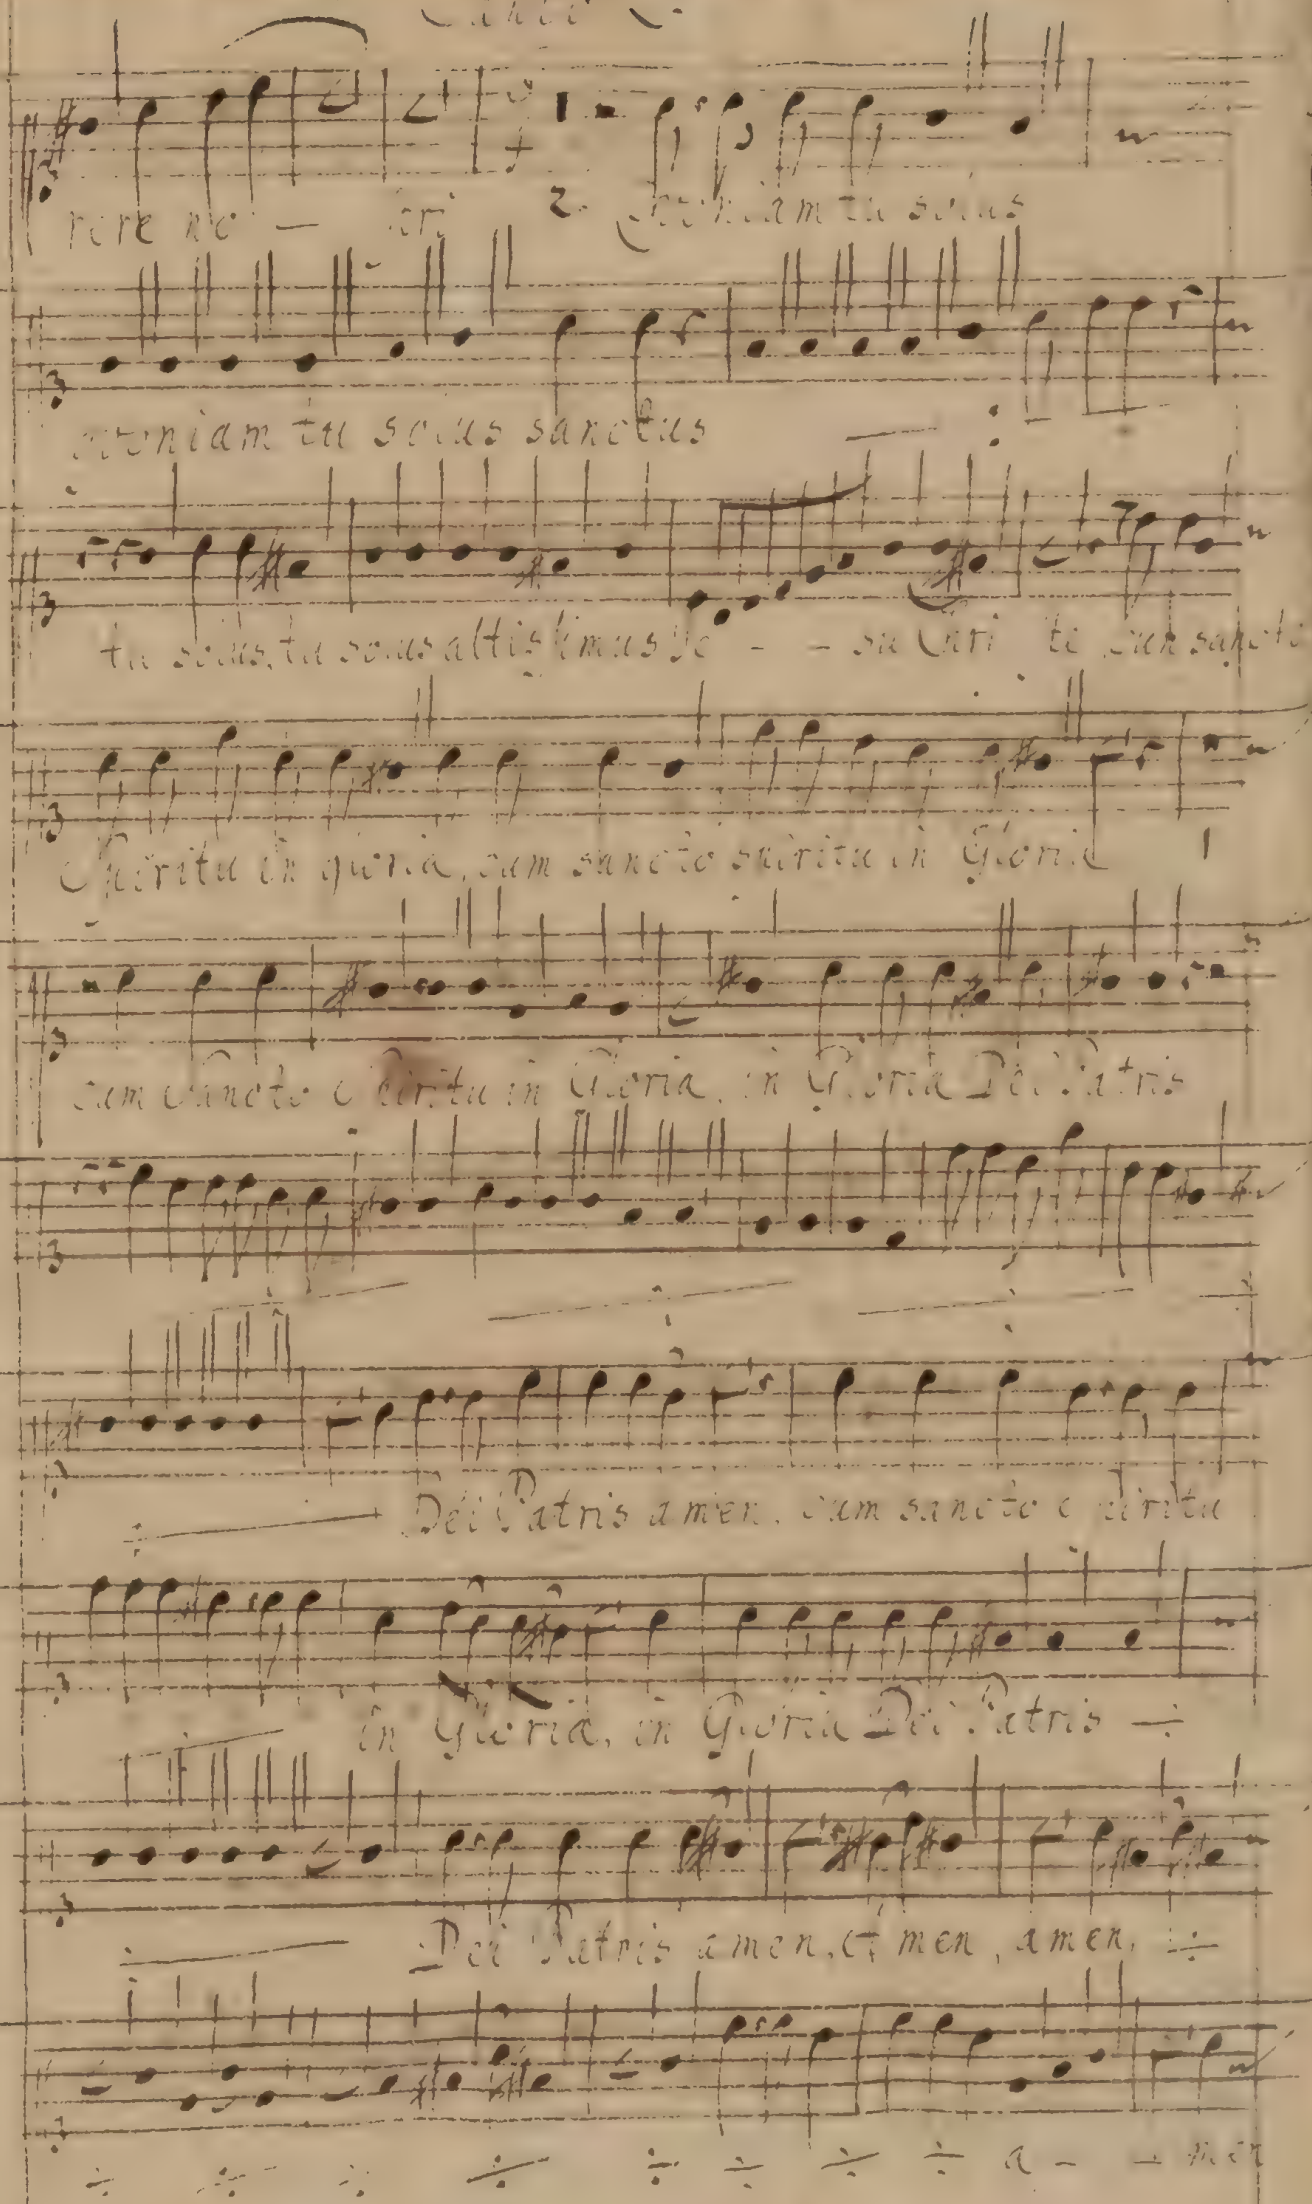 rere no — bri 2. Quoniam tu solus
quoniam tu solus sanctus — :
tu solus, tu solus altissimus Je - - su Chri ste cum sancto
Spiritu in gloria, cum sancto spiritu in Gloria
cum Sancto Spiritu in Gloria, in Gloria Dei Patris
Dei Patris amen. cum sancto Spiritu
in Gloria, in Gloria Dei Patris ÷
Dei Patris amen, a men, amen, ÷
÷ ÷ ÷ ÷ ÷ ÷ ÷ ÷ a - - men